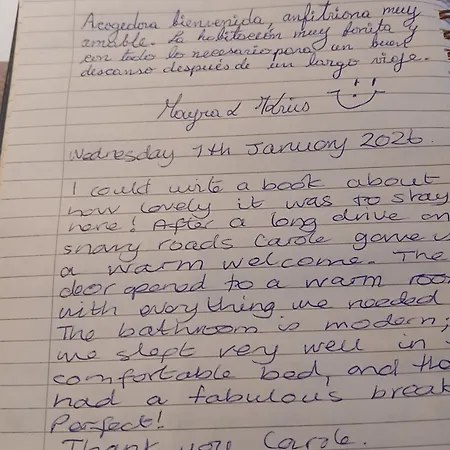 Acogedora bienvenida, anfitriona muy
amable. La habitación muy bonita y
con todo lo necesario para un buen
descanso después de un largo viaje.
Mayra &
Wednesday 7th January 2026.
I could write a book about
how lovely it was to stay
here! After a long drive on
snowy roads Carole gave u
a warm welcome. The
door opened to a warm room
with everything we needed
The bathroom is modern;
we slept very well in
comfortable bed, and the
had a fabulous break
Perfect!
Thank you Carole.